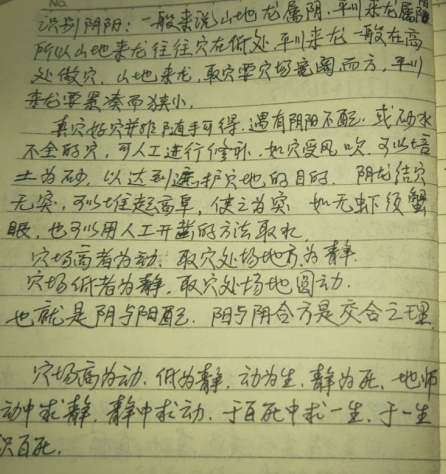 No.
识别阴阳：一般来说山地龙属阴，平川来龙属阳
所以山地来龙往往穴在低处，平川来龙一般在高
处做穴。山地来龙，取穴要穴场宽阔而方，平川
来龙要紧凑而狭小。
真穴好穴并非随手可得，遇有阴阳不配，或砂水
不全的穴，可人工进行修补，如穴受风吹，可以培
土为砂，以达到遮护穴地的目的，阴龙结穴
无突，可以堆起高阜，使之为突，如无虾须蟹
眼，也可以用人工开凿的方法取水。
穴场高者为动，取穴处场地方为静。
穴场低者为静，取穴处场地圆动。
也就是阴与阳配，阳与阴合方是交合之理
穴场高为动，低为静，动为生，静为死，地师
动中求静，静中求动，于百死中求一生，于一生
识百死。